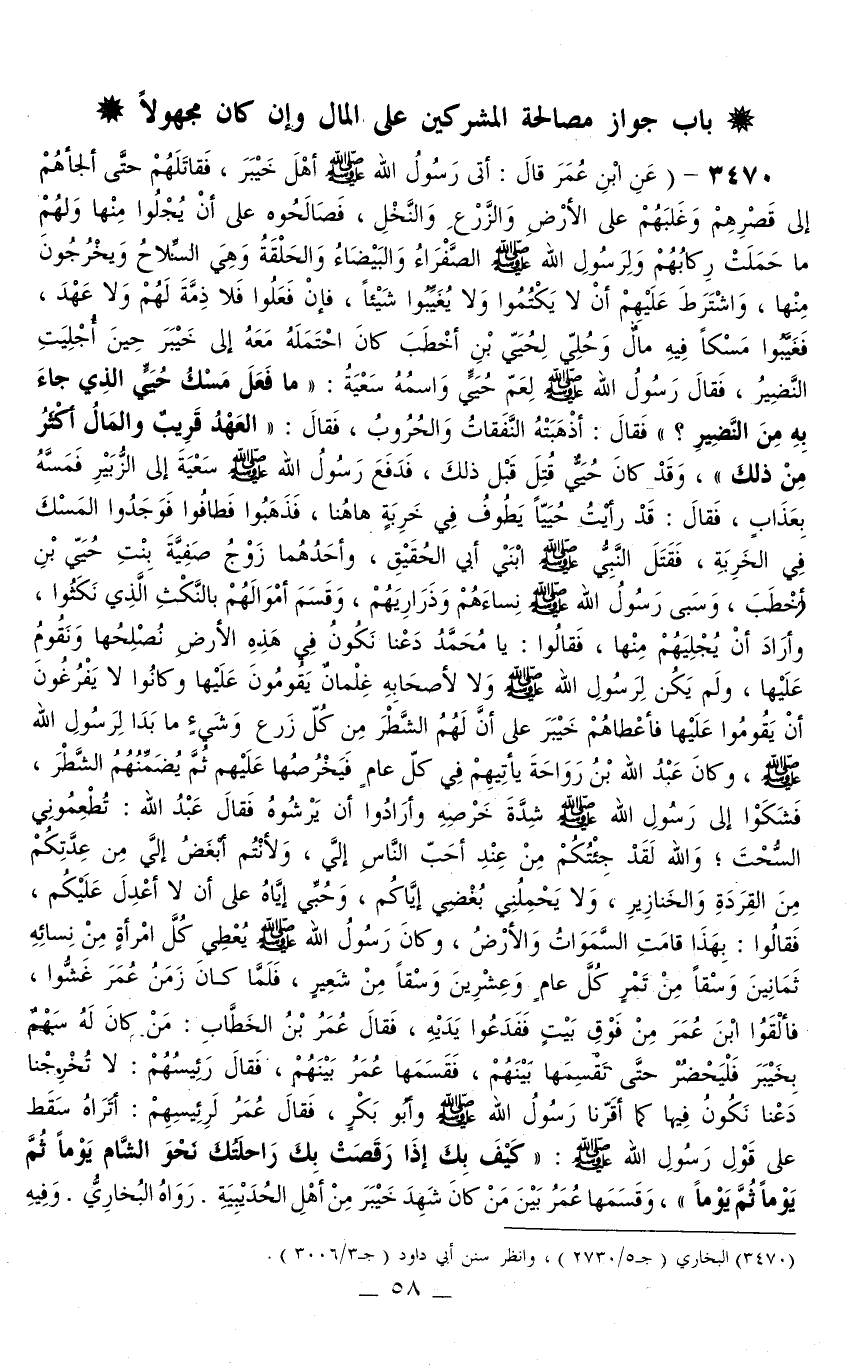 ✹ باب جواز مصالحة المشركين على المال وإن كان مجهولاً ✹
٣٤٧٠ - ( عَنِ ابْنِ عُمَرَ قالَ : أتى رَسُولُ الله ﷺ أهْلَ خَيْبَرَ ، فَقاتَلَهُمْ حتَّى ألجأهُمْ
إلى قَصْرِهِمْ وَغَلبَهُمْ على الأرْضِ وَالزَّرْعِ وَالنَّخْلِ ، فَصَالَحُوه على أنْ يُجْلُوا مِنْها وَلهُمْ
ما حَمَلَتْ رِكابُهُمْ وَلِرَسُولِ الله ﷺ الصَّفْرَاءُ وَالبَيْضَاءُ وَالحَلْقَةُ وَهِيَ السِّلاحُ وَيخْرُجُونَ
مِنْها ، وَاشْتَرطَ عَلَيْهِمْ أنْ لا يَكْتُمُوا وَلا يُغَيِّبُوا شَيْئاً ، فإنْ فَعَلُوا فَلا ذِمَّةَ لَهُمْ وَلا عَهْدَ ،
فَغَيَّبُوا مَسْكاً فِيهِ مالٌ وَحُلِيّ لِحُيَيّ بْنِ أخْطَبَ كانَ احْتَمَلَهُ مَعَهُ إلى خَيْبَرَ حِينَ أُجْلِيَتِ
النَّضِيرُ ، فَقالَ رَسُولُ الله ﷺ لِعَمّ حُيَيٍّ وَاسمُهُ سَعْيَةُ : « ما فَعَلَ مَسْكُ حُيَيٍّ الذِي جاءَ
بِهِ مِنَ النَّضِيرِ ؟ » فَقالَ : أذْهَبَتْهُ النَّفَقاتُ وَالحُرُوبُ ، فَقالَ : « العَهْدُ قَرِيبٌ والمَالُ أكْثَرُ
مِنْ ذلكَ » ، وَقَدْ كانَ حُيَيٌّ قُتِلَ قَبْلَ ذلكَ ، فَدَفَعَ رَسُولُ الله ﷺ سَعْيَةَ إلى الزُّبَيْرِ فَمَسَّهُ
بِعَذَابٍ ، فَقالَ : قَدْ رأيْتُ حُيَيّاً يَطُوفُ فِي خَرِبَةٍ هاهُنا ، فَذَهَبُوا فَطافُوا فَوَجَدُوا المَسْكَ
فِي الخَرِبَةِ ، فَقَتَلَ النَّبِيُّ ﷺ ابْنَيْ أبي الحُقَيْقِ ، وأحَدُهُما زَوْجُ صَفِيَّةَ بِنْتِ حُيَيّ بْنِ
أخْطَبَ ، وَسَبى رَسُولُ الله ﷺ نِساءَهُمْ وَذَرَارِيَهُمْ ، وَقَسَمَ أمْوَالَهُمْ بالنَّكْثِ الَّذِي نَكَثُوا ،
وأرَادَ أنْ يُجْلِيَهُمْ مِنْها ، فَقالُوا : يا مُحَمَّدُ دَعْنا نَكُونُ فِي هَذِهِ الأرْضِ نُصْلِحُها وَنَقُومُ
عَلَيْها ، ولَم يَكُن لِرَسُولِ الله ﷺ وَلا لأصحَابِهِ غِلْمانٌ يَقُومُونَ عَلَيْها وكانُوا لا يَفْرُغُونَ
أنْ يَقُومُوا عَلَيْها فأعْطاهُمْ خَيْبَرَ على أنَّ لَهُمُ الشَّطْرَ مِن كُلّ زَرع وَشَيءٍ ما بَدَا لِرَسُولِ الله
ﷺ ، وكانَ عَبْدُ الله بْنُ رَوَاحَةَ يأتِيهِمْ فِي كلّ عامٍ فَيَخْرُصُها عَلَيْهم ثُمَّ يُضَمِّنُهُمُ الشَّطْرَ ،
فَشَكَوْا إلى رَسُولِ الله ﷺ شِدَّةَ خَرْصِهِ وأرَادُوا أن يَرْشُوهُ فَقالَ عَبْدُ الله : تُطْعِمُونِي
السُّحْتَ ؛ وَالله لَقَدْ جِئْتُكُمْ مِنْ عِنْدِ أحَبّ النَّاسِ إليَّ ، وَلأنْتُم أبْغَضُ إليَّ مِن عِدَّتِكُمْ
مِنَ القِرَدَةِ وَالخَنازِيرِ ، وَلا يَحْمِلُنِي بُغْضِي إيَّاكُم ، وَحُبِّي إيَّاهُ على أن لا أعْدِلَ عَلَيْكُم ،
فَقالُوا : بِهَذَا قامَتِ السَّمَوَاتُ وَالأرْضُ ، وكانَ رَسُولُ الله ﷺ يُعْطِي كُلَّ امْرأةٍ مِنْ نِسائِهِ
ثَمَانِينَ وَسْقاً مِنْ تَمْرٍ كُلَّ عامٍ وَعِشْرِينَ وَسْقاً مِنْ شَعِيرٍ ، فَلَمَّا كانَ زَمَنُ عُمَرَ غَشُّوا ،
فألْقَوُا ابْنَ عُمَرَ مِنْ فَوْقِ بَيْتٍ فَفَدَعُوا يَدَيْهِ ، فَقالَ عُمَرُ بْنُ الخَطَّابِ : مَنْ كانَ لَهُ سَهْمٌ
بِخَيْبَرَ فَلْيَحْضُرْ حتَّى نَقْسِمَها بَيْنَهُمْ ، فَقَسَمَها عُمَرُ بَيْنَهُمْ ، فَقالَ رَئِيسُهُمْ : لا تُخْرِجْنا
دَعْنا نَكُونُ فِيها كما أقَرّنا رَسُولُ الله ﷺ وأبُو بَكْرٍ ، فَقالَ عُمَرُ لِرَئِيسِهِمْ : أتَرَاهُ سَقَط
على قَوْلِ رَسُولِ الله ﷺ : « كَيْفَ بِكَ إذَا رَقَصَتْ بِكَ رَاحلَتُكَ نَحْوَ الشَّام يَوْماً ثُمَّ
يَوْماً ثُمَّ يَوْماً » ، وَقَسَمَها عُمَرُ بَيْنَ مَنْ كانَ شَهِدَ خَيْبَرَ مِنْ أهْلِ الحُدَيْبِيَةِ . رَوَاهُ البُخارِيُّ . وَفِيهِ
(٣٤٧٠) البخاري ( جـ٢٧٣٠/٥ ) ، وانظر سنن أبي داود ( جـ٣٠٠٦/٣ ) .
_ ٥٨ _